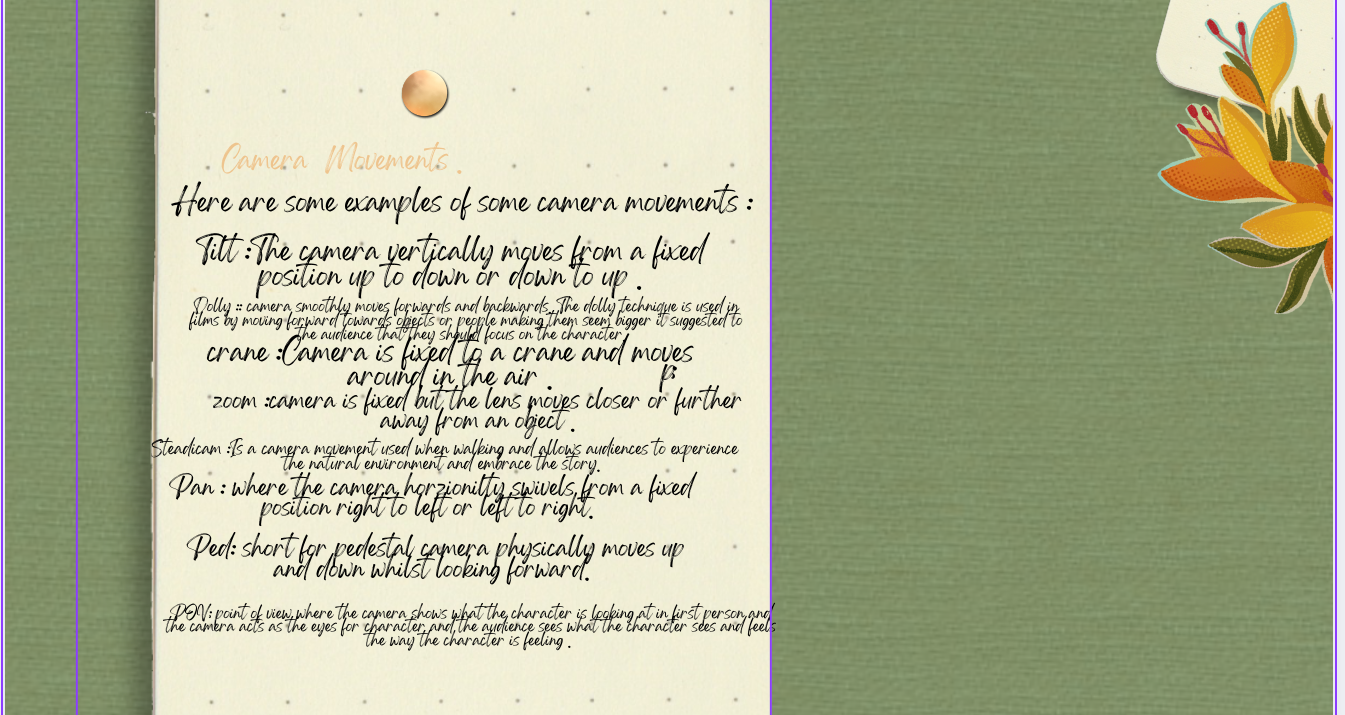 Camera Movements .
Here are some examples of some camera movements :
Tilt :The camera vertically moves from a fixed
position up to down or down to up .
Dolly :: camera smoothly moves forwards and backwards. The dolly technique is used in
films by moving forward towards objects or people making them seem bigger it suggested to
the audience that they should focus on the character
crane :Camera is fixed to a crane and moves
around in the air .
zoom :camera is fixed but the lens moves closer or further
away from an object .
Steadicam :Is a camera movement used when walking and allows audiences to experience
the natural environment and embrace the story.
Pan : where the camera horzionitlty swivels from a fixed
position right to left or left to right.
Ped: short for pedestal camera physically moves up
and down whilst looking forward.
POV: point of view where the camera shows what the character is looking at in first person and
the camera acts as the eyes for character and the audience sees what the character sees and feels
the way the character is feeling .